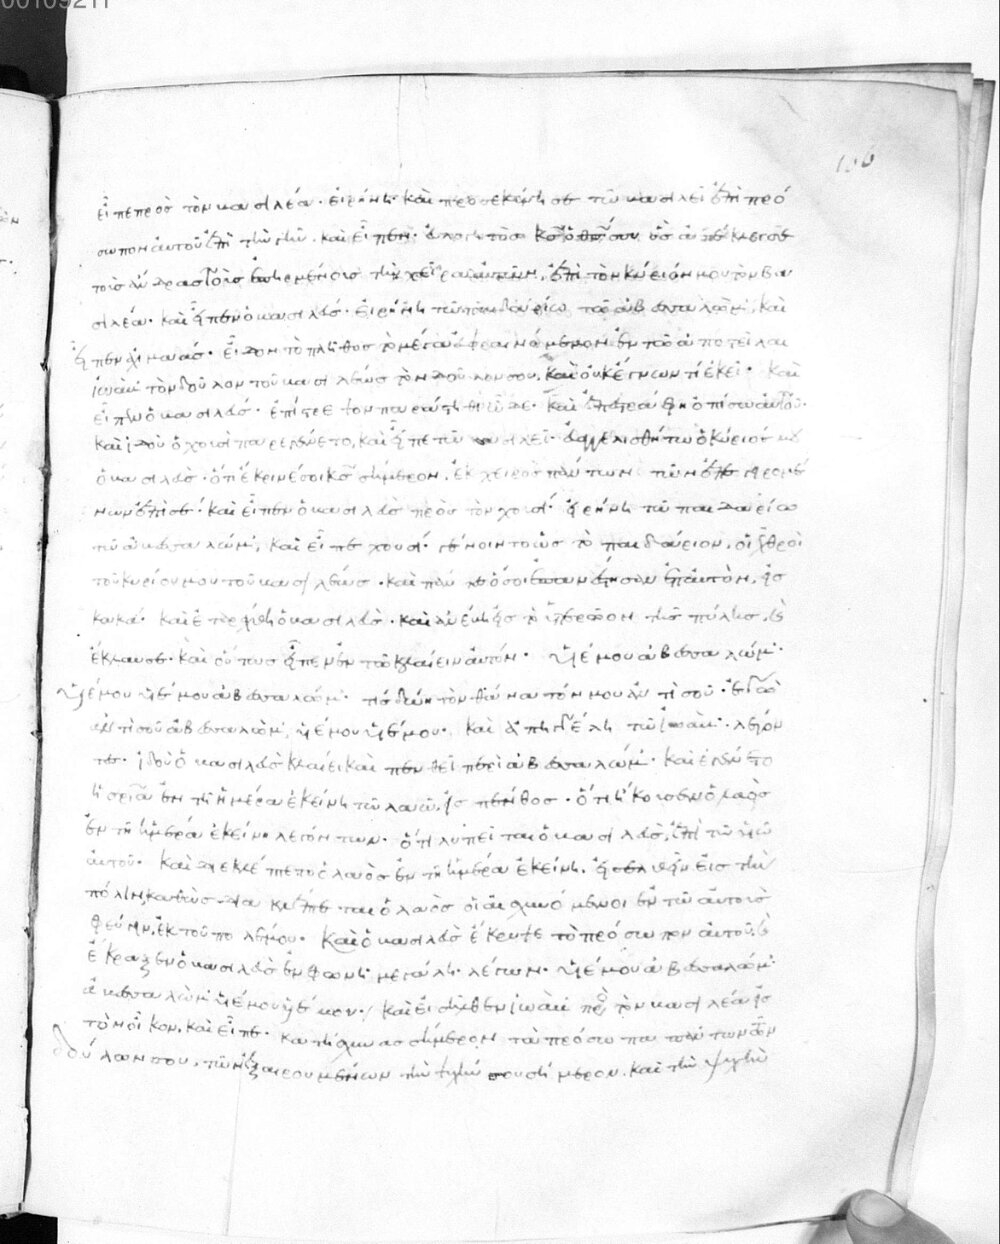 00109211
106
εἶπε πρὸς τὸν βασιλέα· εἰρήνη· καὶ προσεκύνησε τῷ βασιλεῖ ἐπὶ πρό
σωπον αὐτοῦ ἐπὶ τὴν γῆν. καὶ εἶπεν· εὐλογητὸς κς ὁ θς σου ὃς ἀπέκλεισε
τοὺς ἄνδρας τοὺς ἐπηρμένους τὴν χεῖρα αὐτῶν, ἐπὶ τὸν κύριόν μου τὸν βα
σιλέα· καὶ εἶπεν ὁ βασιλεύς· εἰρήνη τῷ παιδαρίῳ τῷ ἀβεσσαλώμ; καὶ
εἶπεν ἀχιμαάς· εἶδον τὸ πλῆθος τὸ μέγα εὐφραινόμενον ἐν τῷ ἀποστεῖλαι
ἰωὰβ τὸν δοῦλον τοῦ βασιλέως τὸν δοῦλον σου, καὶ οὐκ ἔγνων τί ἐκεῖ· καὶ
εἶπεν ὁ βασιλεύς· ἐπίστρεψον παραστήθι ὧδε· καὶ ἐπεστράφη ὀπίσω αὐτοῦ·
καὶ ἰδοὺ ὁ χουσὶ παρεγένετο, καὶ εἶπε τῷ βασιλεῖ· εὐαγγελισθήτω ὁ κύριός μου
ὁ βασιλεύς· ὅτι ἔκρινέ σοι κς σήμερον, ἐκ χειρὸς πάντων τῶν ἐπεγειρομέ
νων ἐπὶ σέ· καὶ εἶπεν ὁ βασιλεὺς πρὸς τὸν χουσί· εἰρήνη τῷ παιδαρίῳ
τῷ ἀβεσσαλώμ; καὶ εἶπε χουσί· γένοιντο ὡς τὸ παιδάριον, οἱ ἐχθροὶ
τοῦ κυρίου μου τοῦ βασιλέως· καὶ πάντες ὅσοι ἐπανέστησαν ἐπ' αὐτὸν, εἰς
κακά· καὶ ἐταράχθη ὁ βασιλεύς· καὶ ἀνέβη εἰς τὸ ὑπερῷον τῆς πύλης, καὶ
ἔκλαυσε· καὶ οὕτως εἶπεν ἐν τῷ κλαίειν αὐτόν· υἱέ μου ἀβεσσαλώμ·
υἱέ μου υἱέ μου ἀβεσσαλώμ· τίς δώη τὸν θάνατόν μου ἀντὶ σοῦ· ἐγὼ
ἀντὶ σοῦ ἀβεσσαλώμ, υἱέ μου υἱέ μου· καὶ ἀπηγγέλη τῷ ἰωάβ· λεγόν
τες· ἰδοὺ ὁ βασιλεὺς κλαίει καὶ πενθεῖ περὶ ἀβεσσαλώμ· καὶ ἐγένετο
ἡ σρία ἐν τῇ ἡμέρᾳ ἐκείνῃ τῷ λαῷ, εἰς πένθος· ὅτι ἤκουσεν ὁ λαὸς
ἐν τῇ ἡμέρᾳ ἐκείνῃ λεγόντων· ὅτι λυπεῖται ὁ βασιλεύς, ἐπὶ τῷ υἱῷ
αὐτοῦ· καὶ διεκλέπτετο ὁ λαὸς ἐν τῇ ἡμέρᾳ ἐκείνῃ. εἰσελθεῖν εἰς τὴν
πόλιν, καθὼς διακλέπτεται ὁ λαὸς οἱ αἰσχυνόμενοι ἐν τῷ αὐτοὺς
φεύγειν, ἐκ τοῦ πολέμου· καὶ ὁ βασιλεὺς ἔκρυψε τὸ πρόσωπον αὐτοῦ, καὶ
ἔκραξεν ὁ βασιλεὺς ἐν φωνῇ μεγάλῃ λέγων· υἱέ μου ἀβεσσαλώμ
ἀβεσσαλώμ υἱέ μου υἱέ μου· καὶ εἰσῆλθεν ἰωὰβ πρὸς τὸν βασιλέα εἰς
τὸν οἶκον, καὶ εἶπε· κατῄσχυνας σήμερον τὰ πρόσωπα πάντων τῶν
δούλων σου, τῶν ἐξαιρουμένων τὴν ψυχήν σου σήμερον. καὶ τὴν ψυχὴν